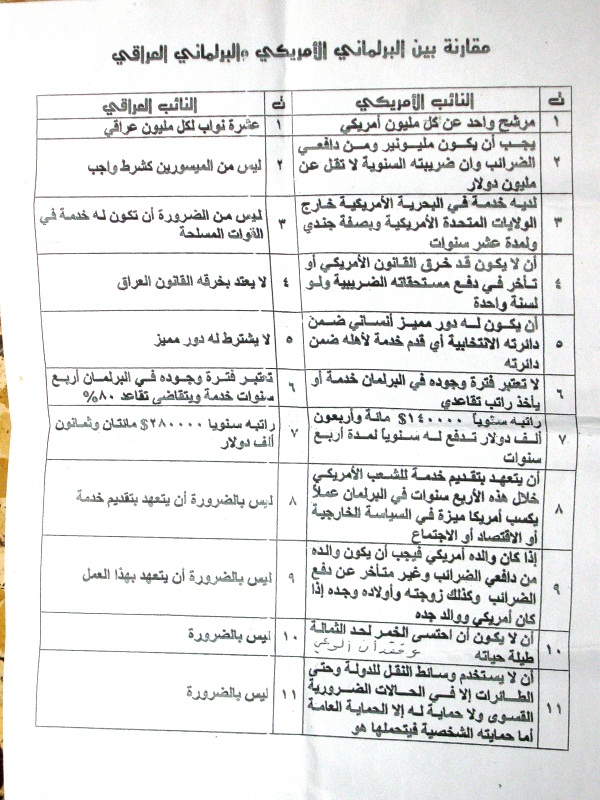 مقارنة بين البرلماني الأمريكي والبرلماني العراقي
ت النائب الأمريكي ت النائب العراقي
١ مرشح واحد عن كل مليون أمريكي ١ عشرة نواب لكل مليون عراقي
٢ يجب أن يكون مليونير ومن دافعي
الضرائب وان ضريبته السنوية لا تقل عن
مليون دولار
٢ ليس من الميسورين كشرط واجب
٣ لديه خدمة في البحرية الأمريكية خارج
الولايات المتحدة الأمريكية وبصفة جندي
ولمدة عشر سنوات
٣ ليس من الضرورة أن تكون له خدمة في
القوات المسلحة
٤ أن لا يكون قد خرق القانون الأمريكي أو
تأخر في دفع مستحقاته الضريبية ولو
لسنة واحدة
٤ لا يعتد بخرقه القانون العراق
٥ أن يكون له دور مميز أنساني ضمن
دائرته الانتخابية أي قدم خدمة لأهله ضمن
دائرته
٥ لا يشترط له دور مميز
٦ لا تعتبر فترة وجوده في البرلمان خدمة أو
يأخذ راتب تقاعدي
٦ تعتبر فترة وجوده في البرلمان أربع
سنوات خدمة ويتقاضى تقاعد ٨٠%
٧ راتبه سنوياً ١٤٠٠٠٠$ مائة وأربعون
ألف دولار تدفع له سنوياً لمدة أربع
سنوات
٧ راتبه سنويا ٢٨٠٠٠٠$ مائتان وثمانون
ألف دولار
٨ أن يتعهد بتقديم خدمة للشعب الأمريكي
خلال هذه الأربع سنوات في البرلمان عملاً
يكسب أمريكا ميزة في السياسة الخارجية
أو الاقتصاد أو الاجتماع
٨ ليس بالضرورة أن يتعهد بتقديم خدمة
٩ إذا كان والده أمريكي فيجب أن يكون والده
من دافعي الضرائب وغير متأخر عن دفع
الضرائب وكذلك زوجته وأولاده وجده إذا
كان أمريكي ووالد جده
٩ ليس بالضرورة أن يتعهد بهذا العمل
١٠ أن لا يكون أن احتسى الخمر لحد الثمالة
وفقدان الوعي
طيلة حياته
١٠ ليس بالضرورة
١١ أن لا يستخدم وسائط النقل للدولة وحتى
الطائرات إلا في الحالات الضرورية
القسوى ولا حماية له إلا الحماية العامة
أما حمايته الشخصية فيتحملها هو
١١ ليس بالضرورة